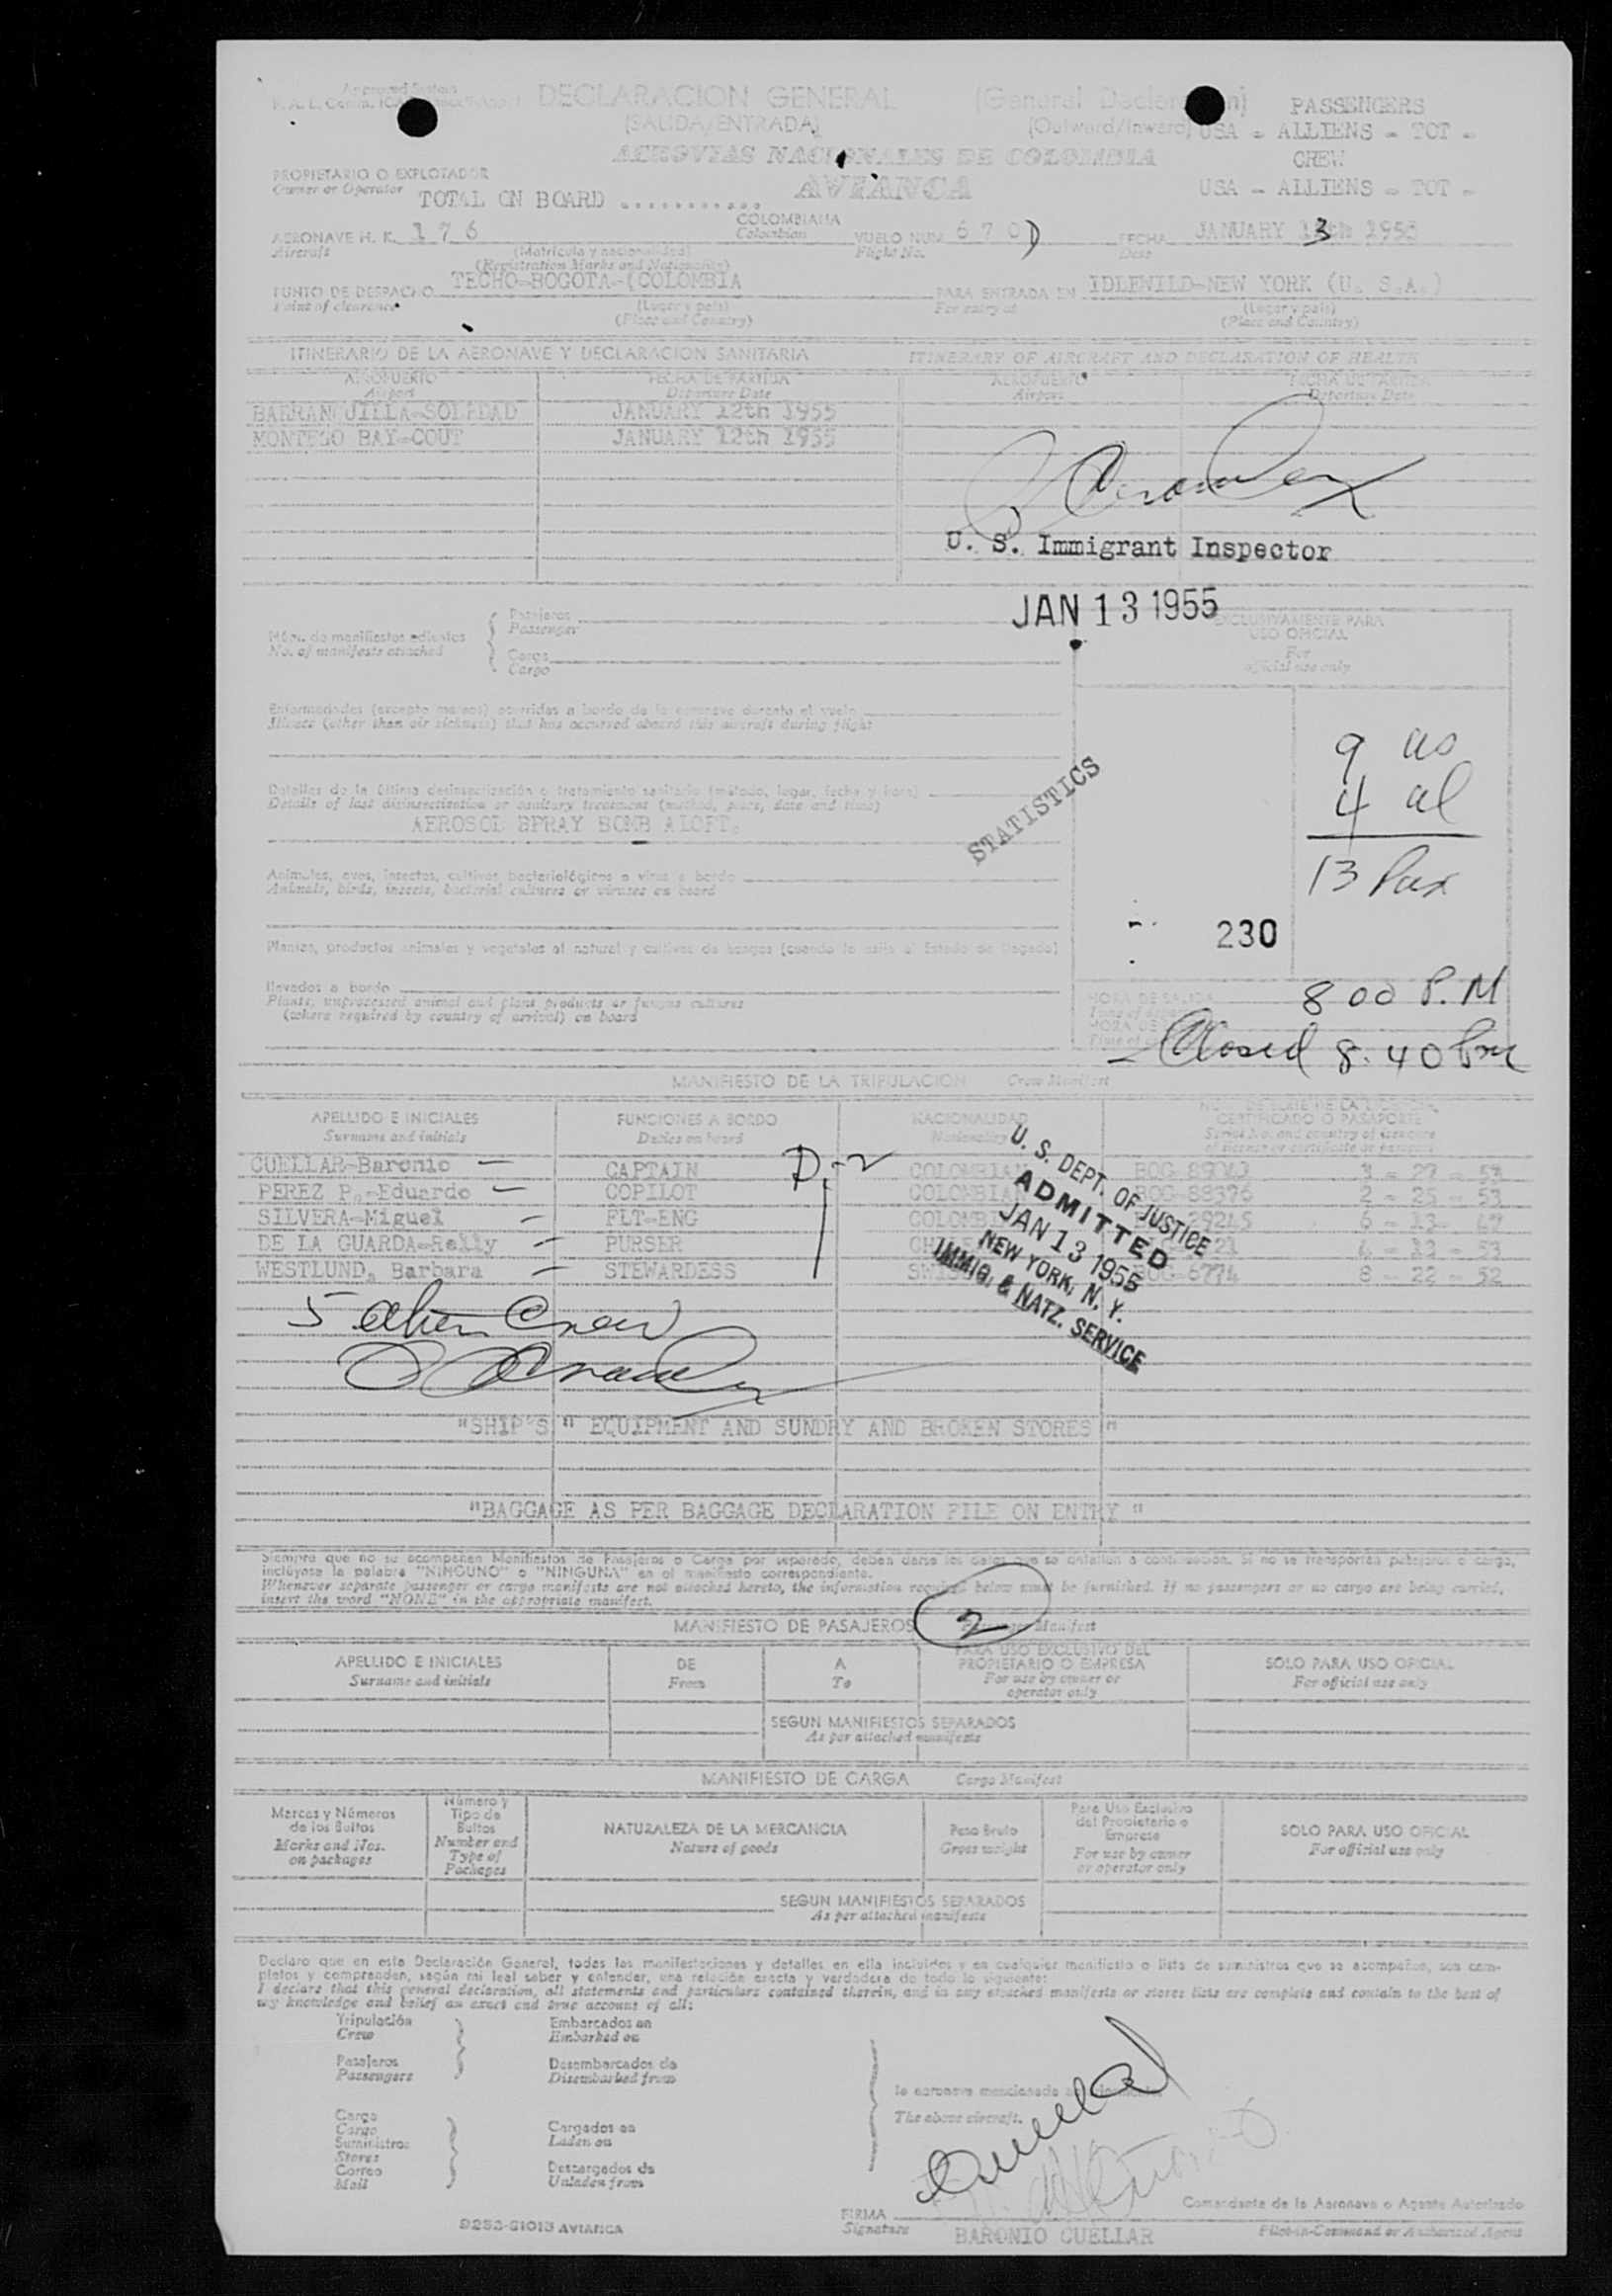 DECLARACION GENERAL
(SALIDA/ENTRADA)
(Outward/Inward)
PASSENGERS
USA - ALLIENS - TOT -
CREW
USA - ALLIENS - TOT -
AEROVIAS NACIONALES DE COLOMBIA
AVIANCA
PROPIETARIO O EXPLOTADOR
Owner or Operator
TOTAL ON BOARD ...........
AERONAVE H. K. 176
Aircraft
(Matricula y nacionalidad)
(Registration Marks and Nationality)
COLOMBIANA
Colombian
VUELO NUM. 670D
Flight No.
FECHA JANUARY 13th 1955
Date
PUNTO DE DESPACHO TECHO-BOGOTA-(COLOMBIA
Point of clearance
(Lugar y país)
(Place and Country)
PARA ENTRADA EN IDLEWILD-NEW YORK (U. S.A.)
For entry at
(Lugar y país)
(Place and Country)
ITINERARIO DE LA AERONAVE Y DECLARACION SANITARIA
ITINERARY OF AIRCRAFT AND DECLARATION OF HEALTH
AEROPUERTO
Airport
FECHA DE PARTIDA
Departure Date
AEROPUERTO
Airport
FECHA DE PARTIDA
Departure Date
BARRANQUILLA-SOLEDAD JANUARY 12th 1955
MONTEGO BAY-COUT JANUARY 12th 1955
U. S. Immigrant Inspector
JAN 13 1955
Núm. de manifiestos adjuntos
No. of manifests attached
Pasajeros
Passenger
Carga
Cargo
EXCLUSIVAMENTE PARA
USO OFICIAL
For
official use only
Enfermedades (excepto mareos) ocurridas a bordo de la aeronave durante el vuelo
Illness (other than air sickness) that has occurred aboard this aircraft during flight
9 us
4 al
13 Pax
Detalles de la última desinsectización o tratamiento sanitario (método, lugar, fecha y hora)
Details of last disinsectization or sanitary treatment (method, place, date and time)
AEROSOL SPRAY BOMB ALOFT.
STATISTICS
Animales, aves, insectos, cultivos bacteriológicos o virus a bordo
Animals, birds, insects, bacterial cultures or viruses on board
230
Plantas, productos animales y vegetales al natural y cultivos de hongos (cuando lo exija el Estado de llegada)
llevados a bordo
Plants, unprocessed animal and plant products or fungus cultures
(where required by country of arrival) on board
HORA DE SALIDA
8 00 P.M
Closed 8:40 Pm
MANIFIESTO DE LA TRIPULACION Crew Manifest
APELLIDO E INICIALES
Surname and initials
FUNCIONES A BORDO
Duties on board
NACIONALIDAD
Nationality
CERTIFICADO O PASAPORTE
CUELLAR-Baronio CAPTAIN COLOMBIAN 3 - 27 - 53
PEREZ P.-Eduardo COPILOT COLOMBIAN BOG-88376 2 - 25 - 53
SILVERA-Miguel FLT-ENG 29245
DE LA GUARDA-Relly PURSER
WESTLUND, Barbara STEWARDESS BOG-6774 8 - 22 - 52
D-2
U. S. DEPT. OF JUSTICE
ADMITTED
JAN 13 1955
NEW YORK, N. Y.
IMMIG. & NATZ. SERVICE
5 alien Crew
"SHIP'S " EQUIPMENT AND SUNDRY AND BROKEN STORES "
"BAGGAGE AS PER BAGGAGE DECLARATION FILE ON ENTRY "
Siempre que no se acompañen Manifiestos de Pasajeros o Carga por separado, deben darse los datos que se detallan a continuación. Si no se transportan pasajeros o carga,
inclúyase la palabra "NINGUNO" o "NINGUNA" en el manifiesto correspondiente.
Whenever separate passenger or cargo manifests are not attached hereto, the information required below must be furnished. If no passengers or no cargo are being carried,
insert the word "NONE" in the appropriate manifest.
MANIFIESTO DE PASAJEROS Manifest
2
APELLIDO E INICIALES
Surname and initials
DE
From
A
To
PARA USO EXCLUSIVO DEL
PROPIETARIO O EMPRESA
For use by owner or
operator only
SOLO PARA USO OFICIAL
For official use only
SEGUN MANIFIESTOS SEPARADOS
As per attached manifests
MANIFIESTO DE CARGA Cargo Manifest
Marcas y Números
de los Bultos
Marks and Nos.
on packages
Número y
Tipo de
Bultos
Number and
Type of
Packages
NATURALEZA DE LA MERCANCIA
Nature of goods
Peso Bruto
Gross weight
Para Uso Exclusivo
del Propietario o
Empresa
For use by owner
or operator only
SOLO PARA USO OFICIAL
For official use only
SEGUN MANIFIESTOS SEPARADOS
As per attached manifests
Declaro que en esta Declaración General, todas las manifestaciones y detalles en ella incluídos y en cualquier manifiesto o lista de suministros que se acompañan, son com-
pletos y comprenden, según mi leal saber y entender, una relación exacta y verdadera de todo lo siguiente:
I declare that this general declaration, all statements and particulars contained therein, and in any attached manifests or stores lists are complete and contain to the best of
my knowledge and belief an exact and true account of all:
Tripulación
Crew
Pasajeros
Passengers
Embarcados en
Embarked on
Desembarcados de
Disembarked from
Carga
Cargo
Suministros
Stores
Correo
Mail
Cargados en
Laden on
Descargados de
Unladen from
la aeronave mencionada
The above aircraft.
Cuellar
FIRMA
Signature
BARONIO CUELLAR
Comandante de la Aeronave o Agente Autorizado
Pilot-in-Command or Authorized Agent
9253-51013 AVIANCA